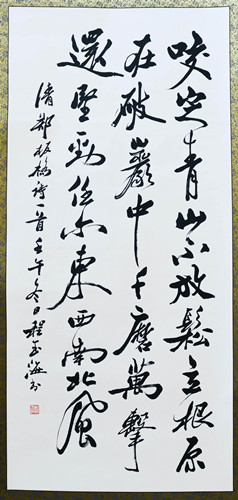 咬定青山不放鬆立根原
在破巖中千磨萬擊
還堅勁任尔東西南北風
清鄭板橋詩一首壬午冬日程玉海书